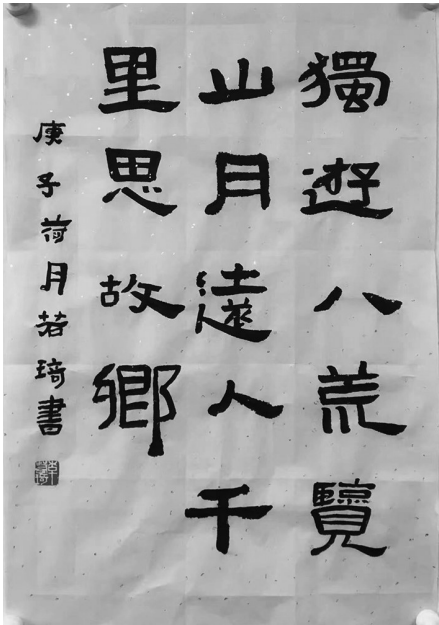 獨遊八荒覽
山月遠人千
里思故鄉
庚子荷月若琦書